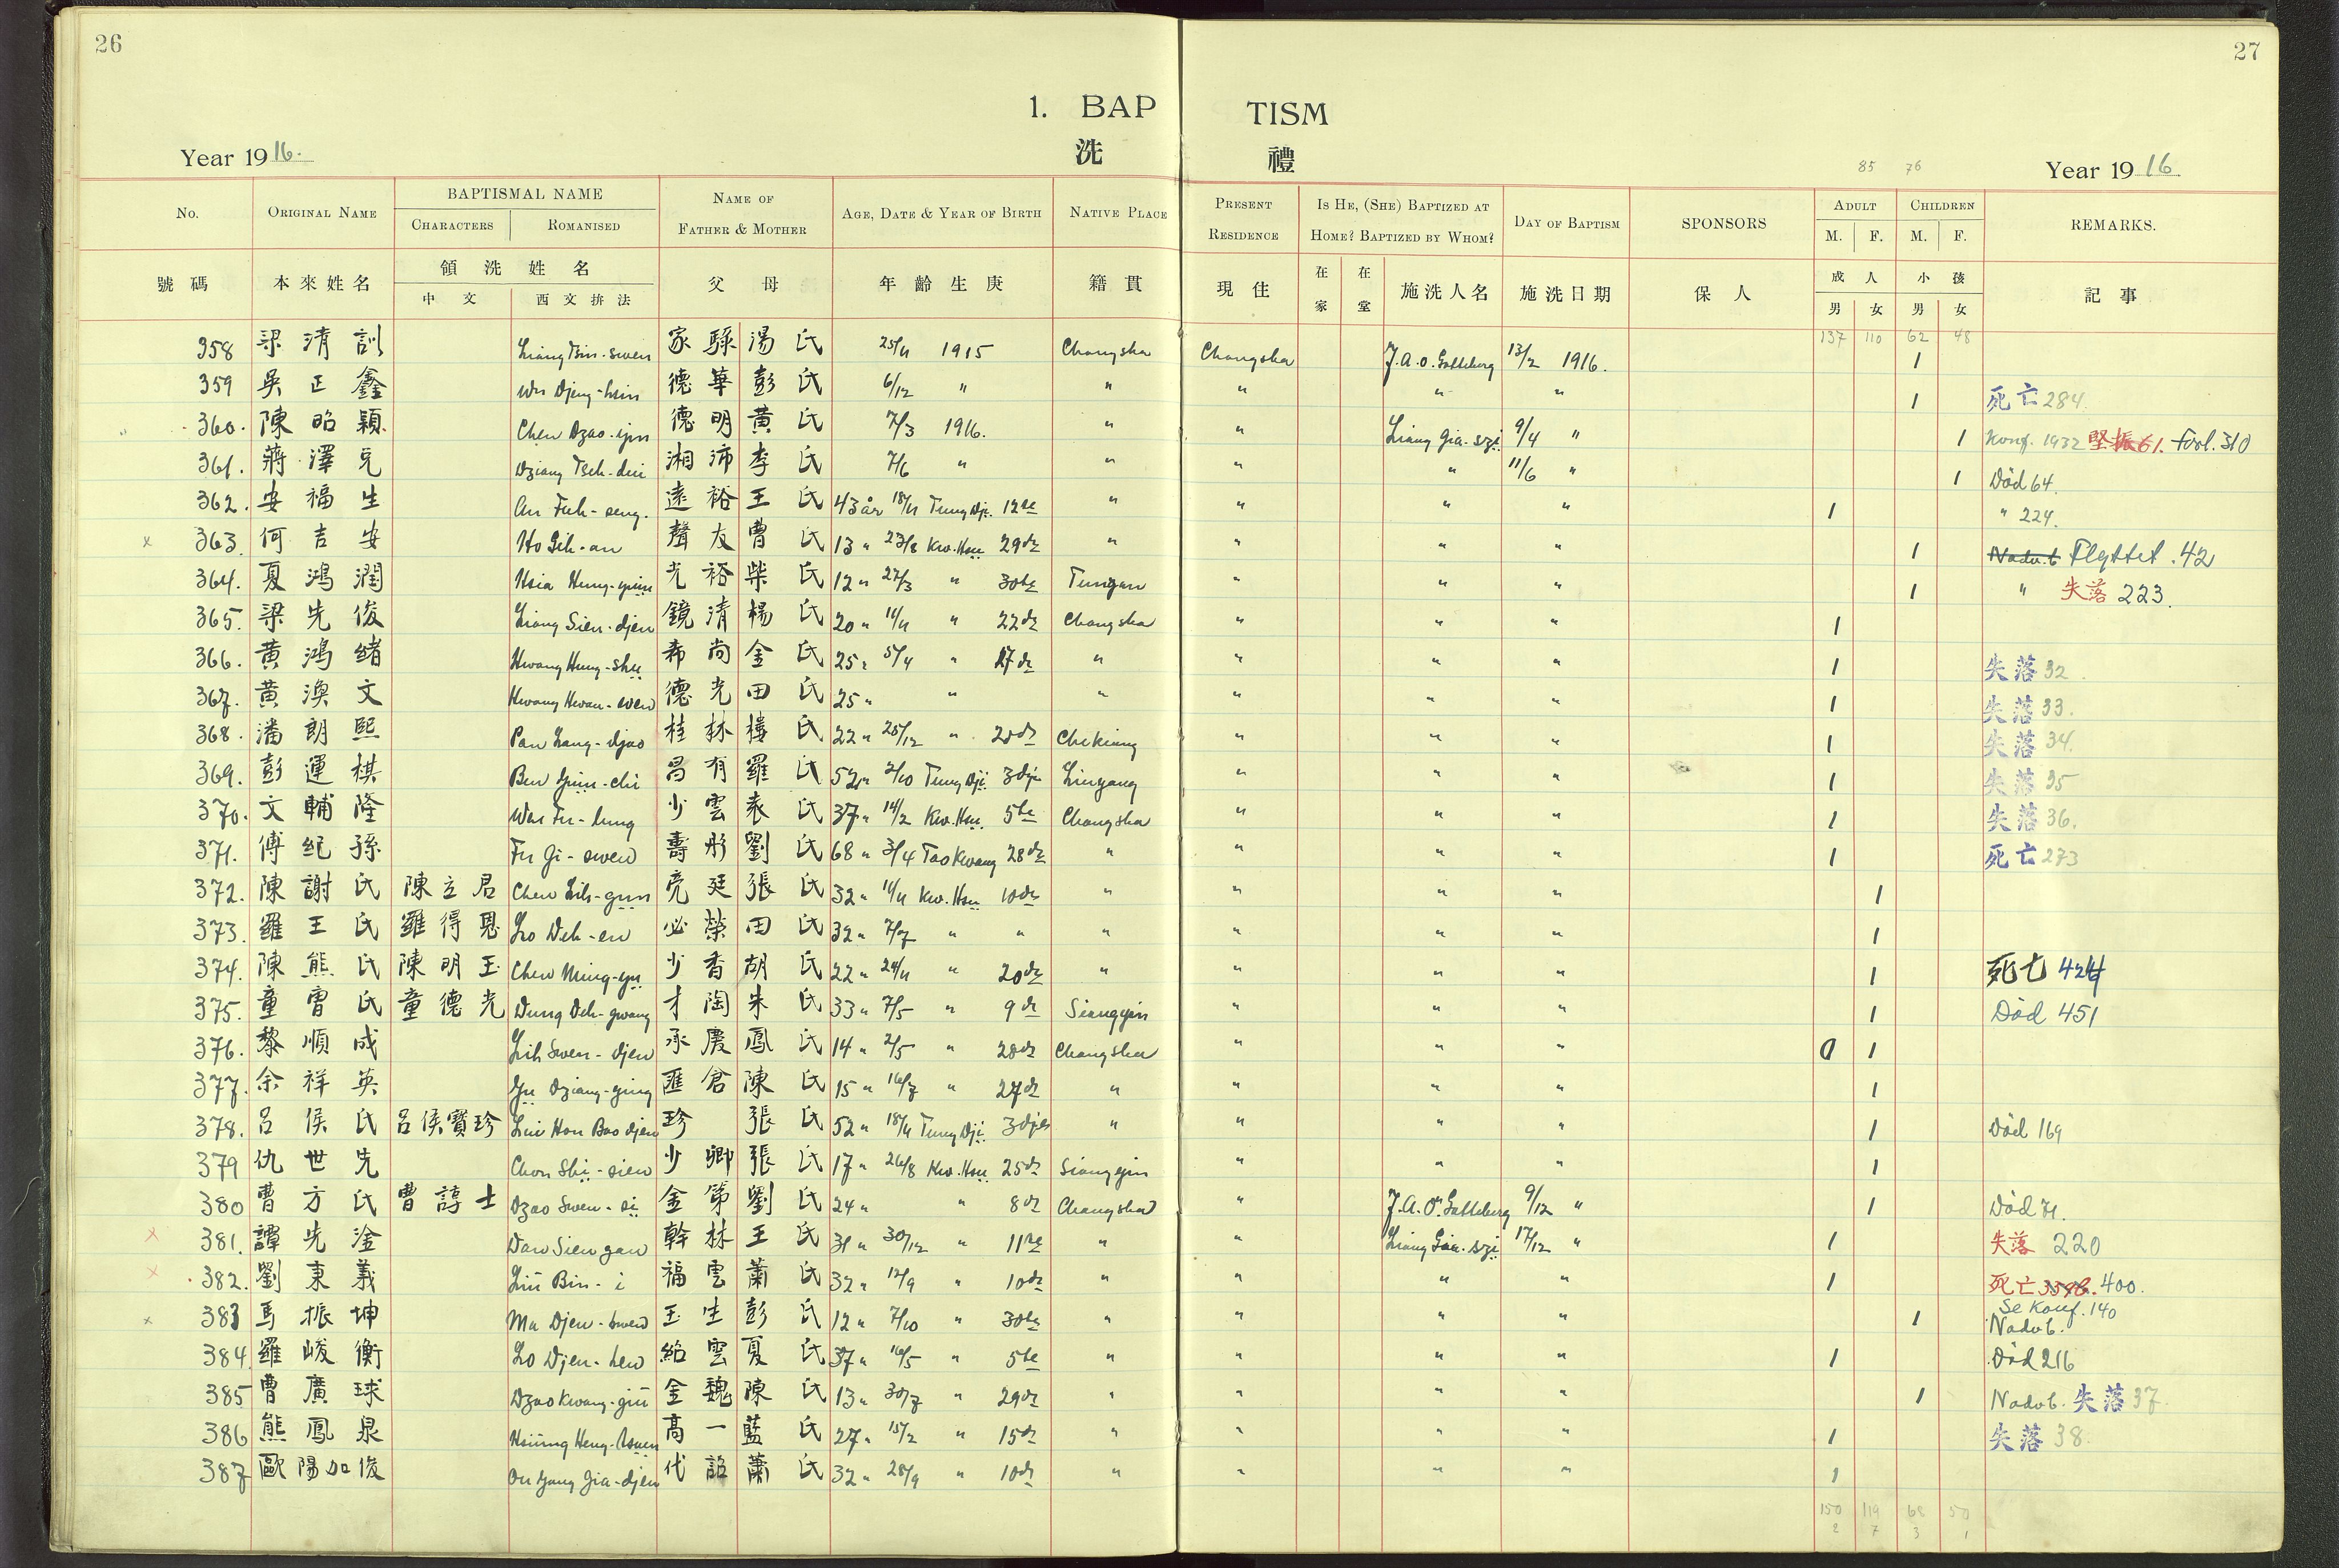 26
27
1. BAP TISM
洗 禮
Year 1916.
85 76 Year 1916
No. ORIGINAL NAME BAPTISMAL NAME CHARACTERS ROMANISED NAME OF FATHER & MOTHER AGE, DATE & YEAR OF BIRTH NATIVE PLACE PRESENT RESIDENCE IS HE, (SHE) BAPTIZED AT HOME? BAPTIZED BY WHOM? DAY OF BAPTISM SPONSORS ADULT M. F. CHILDREN M. F. REMARKS.
號碼 本來姓名 領洗姓名 中文 西文拚法 父母 年齡生庚 籍貫 現住 在家 在堂 施洗人名 施洗日期 保人 成人 男 女 小孩 男 女 記事
137 110 62 48
358 梁清訓 Liang Tsin-swen 家騄 湯氏 25/11 1915 Changsha Changsha J.A.O. Gotteberg 13/2 1916. 1
359 吳正鑫 Wu Djeng-hsin 德華 彭氏 6/12 " " " " " 1 死亡 284.
360. 陳昭穎 Chen Dzao-yin 德明 黃氏 7/3 1916. " " Liang Gia-szi 9/4 " 1 Konf. 1932 堅振61. Forl. 310
361. 蔣澤兌 Dziang Tseh-dui 湘沛 李氏 7/6 " " " " 11/6 " 1 Död 64.
362. 安福生 An Fuh-seng. 遠裕 王氏 43 år 18/11 Tung Dji. 12te " " " " 1 " 224.
x 363. 何吉安 Ho Gih-an 聲友 曹氏 13 " 23/8 Kw. Hsu 29de " " " " 1 Nadv.b Flyttet. 42
364. 夏鴻潤 Hsia Hung-yuin 光裕 柴氏 12 " 27/3 " 30te " " " 1 " 失落 223.
365. 梁先俊 Liang Sien-djen 鏡清 楊氏 20 " 14/11 " 22de Changsha " " " 1
366. 黃鴻緒 Hwang Hung-shu 希尚 金氏 25 " 5/4 " 17de " " " " 1 失落 32.
367. 黃渙文 Hwang Hwan-wen 德光 田氏 25 " " " " " " 1 失落 33.
368. 潘朗熙 桂林 樓氏 22 " 25/12 " Chekiang " " " 1 失落 34.
369. 彭運棋 昌有 羅氏 52 " 2/10 Tung Dji 3dje Liuyang " " " 1 失落 35
370. 文輔隆 Wen Fu-lung 少雲 袁氏 37 " 14/2 Kw. Hsu. 5te Changsha " " " 1 失落 36.
371. 傅紀孫 Fu Gi-swen 壽彤 劉氏 68 " 3/4 Tao Kwang 28de " " " " 1 死亡 273
372. 陳謝氏 陳立君 Chen Lih-gün 亮廷 張氏 32 " 11/11 Kw. Hsu 10de " " " " 1
373. 羅王氏 羅得恩 Lo Deh-en 必榮 田氏 32 " 7/7 " " " " " " 1
374. 陳熊氏 陳明玉 Chen Ming-yu 少香 胡氏 22 " 24/11 " 20de " " " " 1 死亡 424
375. 童曾氏 童德光 Dung Deh-gwang 才陶 朱氏 33 " 7/5 " 9de Siangyin " " " 1 Död 451
376. 黎順成 Lih Swen-djen 承慶 鳳氏 14 " 2/5 " 28de Changsha " " " 1
377. 余祥英 Yu Dziang-ying 匯倉 陳氏 15 " 16/7 " 27de " " " " 1
378. 呂侯氏 呂侯寶珍 Lui Hou Bao djen 珍 張氏 52 " 18/11 Tung Dji. 3dje " " " " 1 Död 169
379 仇世先 Chou Shi-sien 少卿 張氏 17 " 26/8 Kw. Hsu 25de Siangyin " " " 1
380 曹方氏 曹諄士 Dzao Swen-si 金第 劉氏 24 " " 8de Changsha " J.A.O. Gotteberg 9/12 " 1 Död 71.
x 381. 譚先淦 Dan Sien gan 幹林 王氏 31 " 30/12 " 11te " " Liang Gia-szi 17/12 " 1 失落 220
x 382. 劉秉義 Liu Bin-i 福雲 蕭氏 32 " 12/9 " 10de " " " " 1 死亡 400.
x 383 馬振坤 Ma Djen-kwen 玉生 彭氏 12 " 7/10 " 30te " " " " 1 Se Konf. 140 Nadvb.
384 羅峻衡 Lo Djen-hen 紹雲 夏氏 37 " 16/5 " 5te " " " " 1 Död 216
385 曹廣球 Dzao Kwang-giu 金魏 陳氏 13 " 30/7 " 29de " " " " 1 Nadvb. 失落 37.
386 熊鳳泉 高一 藍氏 27 " 15/2 " 15de " " " " 1 失落 38.
387 歐陽加俊 Ou Yang Gia-djen 代詔 蕭氏 32 " 28/9 " 10de " " " " 1
150 119 68 50
2 7 3 1